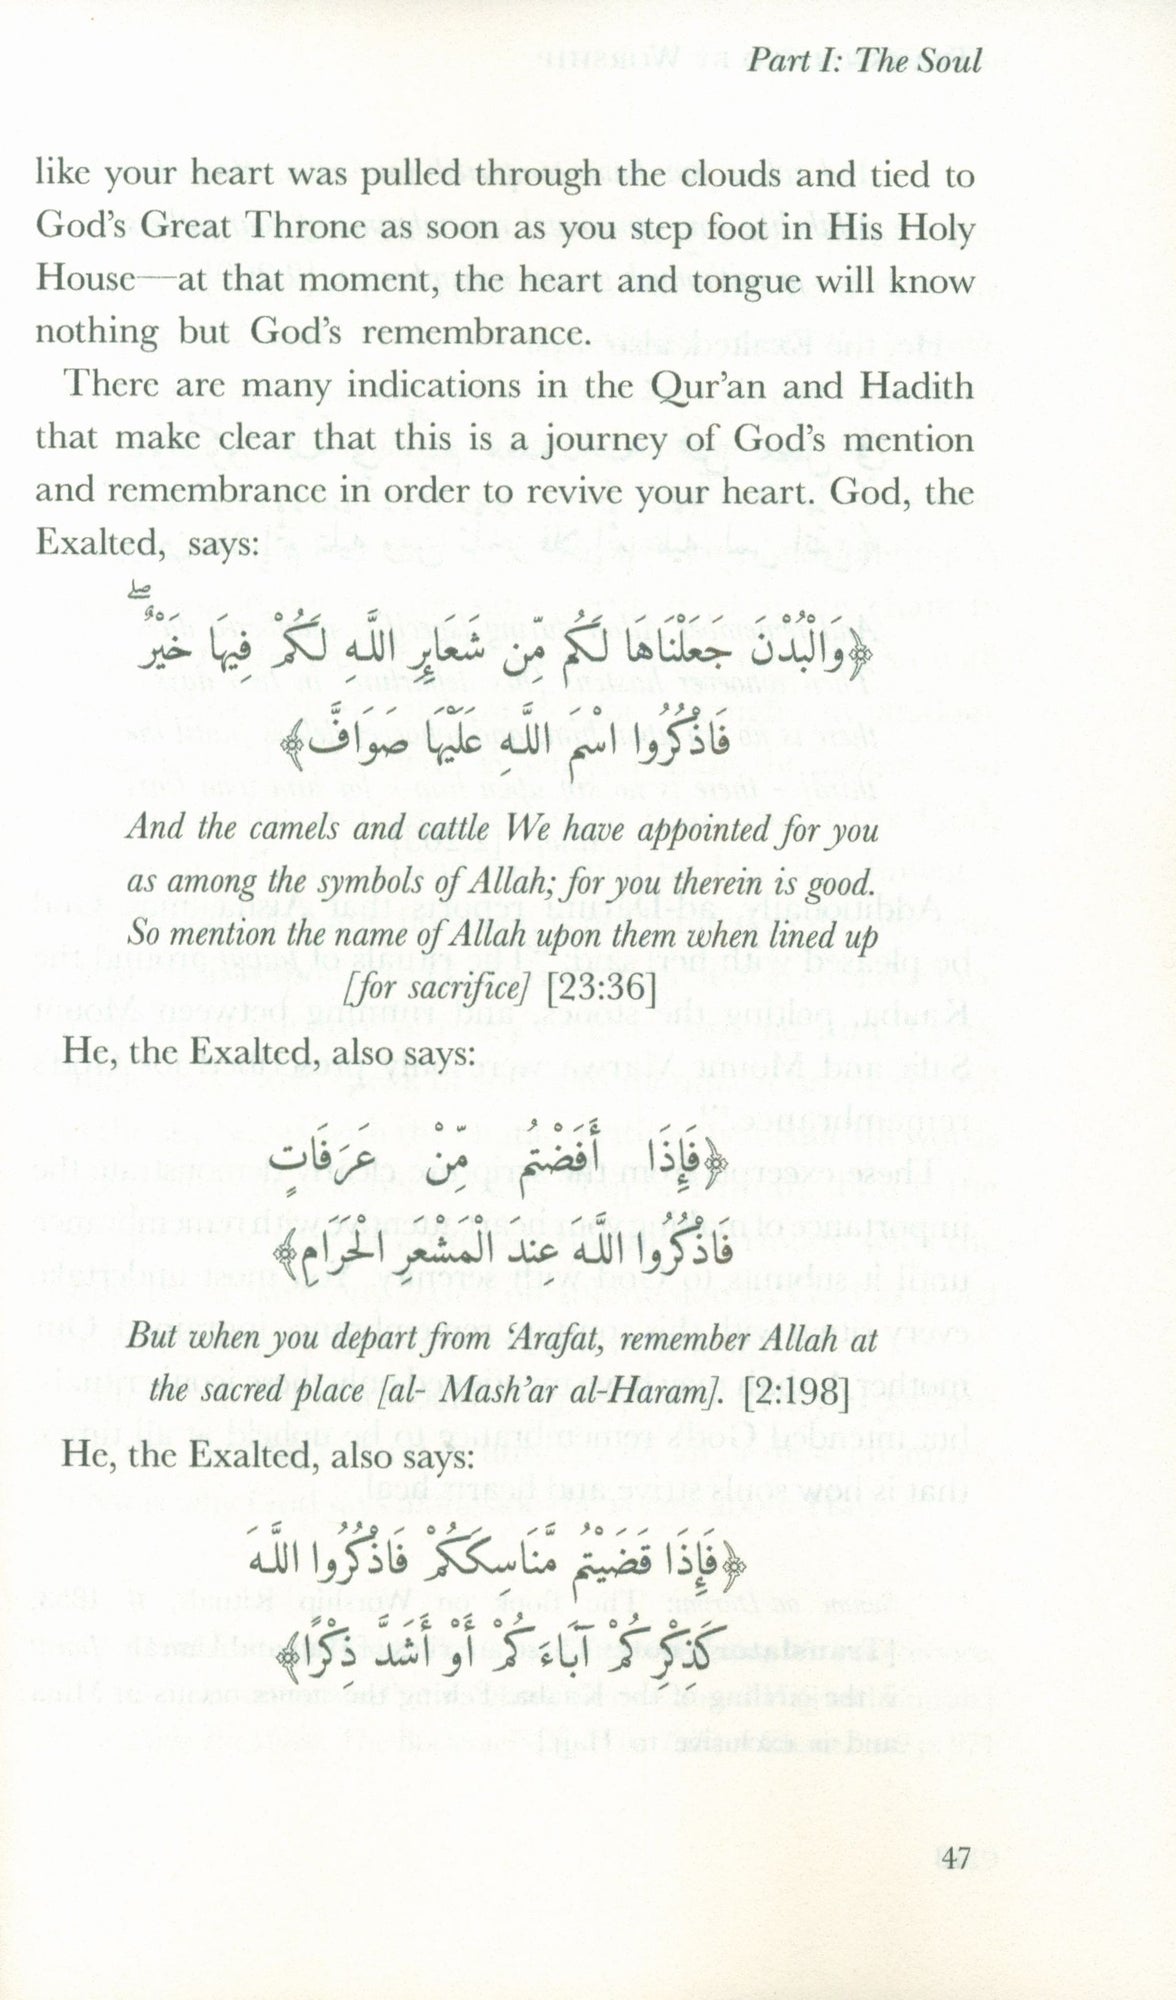 Part I: The Soul
like your heart was pulled through the clouds and tied to
God's Great Throne as soon as you step foot in His Holy
House—at that moment, the heart and tongue will know
nothing but God's remembrance.
There are many indications in the Qur'an and Hadith
that make clear that this is a journey of God's mention
and remembrance in order to revive your heart. God, the
Exalted, says:
﴿وَالْبُدْنَ جَعَلْنَاهَا لَكُم مِّن شَعَابِرِ اللَّهِ لَكُمْ فِيهَا خَيْرٌ ۖ
فَاذْكُرُوا اسْمَ اللَّهِ عَلَيْهَا صَوَافَّ﴾
And the camels and cattle We have appointed for you
as among the symbols of Allah; for you therein is good.
So mention the name of Allah upon them when lined up
[for sacrifice] [23:36]
He, the Exalted, also says:
﴿فَإِذَا أَفَضْتُم مِّنْ عَرَفَاتٍ
فَاذْكُرُوا اللَّهَ عِندَ الْمَشْعَرِ الْحَرَامِ﴾
But when you depart from ‘Arafat, remember Allah at
the sacred place [al- Mash'ar al-Haram]. [2:198]
He, the Exalted, also says:
﴿فَإِذَا قَضَيْتُم مَّنَاسِكَكُمْ فَاذْكُرُوا اللَّهَ
كَذِكْرِكُمْ آبَاءَكُمْ أَوْ أَشَدَّ ذِكْرًا﴾
47